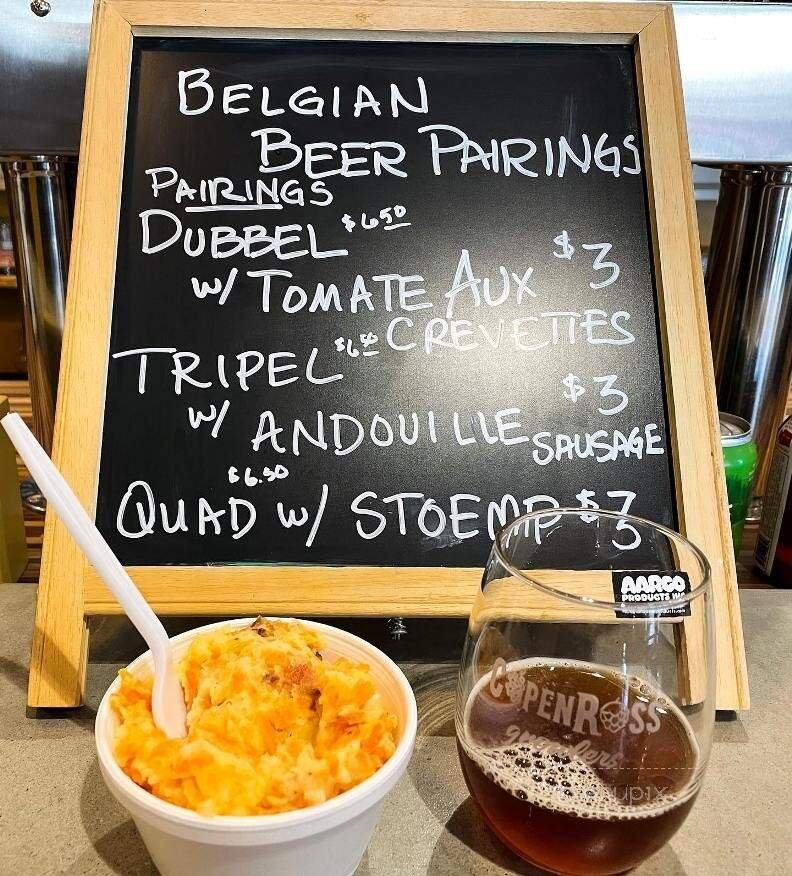 BELGIAN
BEER PAIRINGS
PAIRINGS
DUBBEL $6.50
W/ TOMATE AUX $3
CREVETTES
TRIPEL $6.50
W/ ANDOUILLE $3
SAUSAGE
$6.50
QUAD W/ STOEMP $3
AARCO
PRODUCTS INC
COPENROSS
growlers